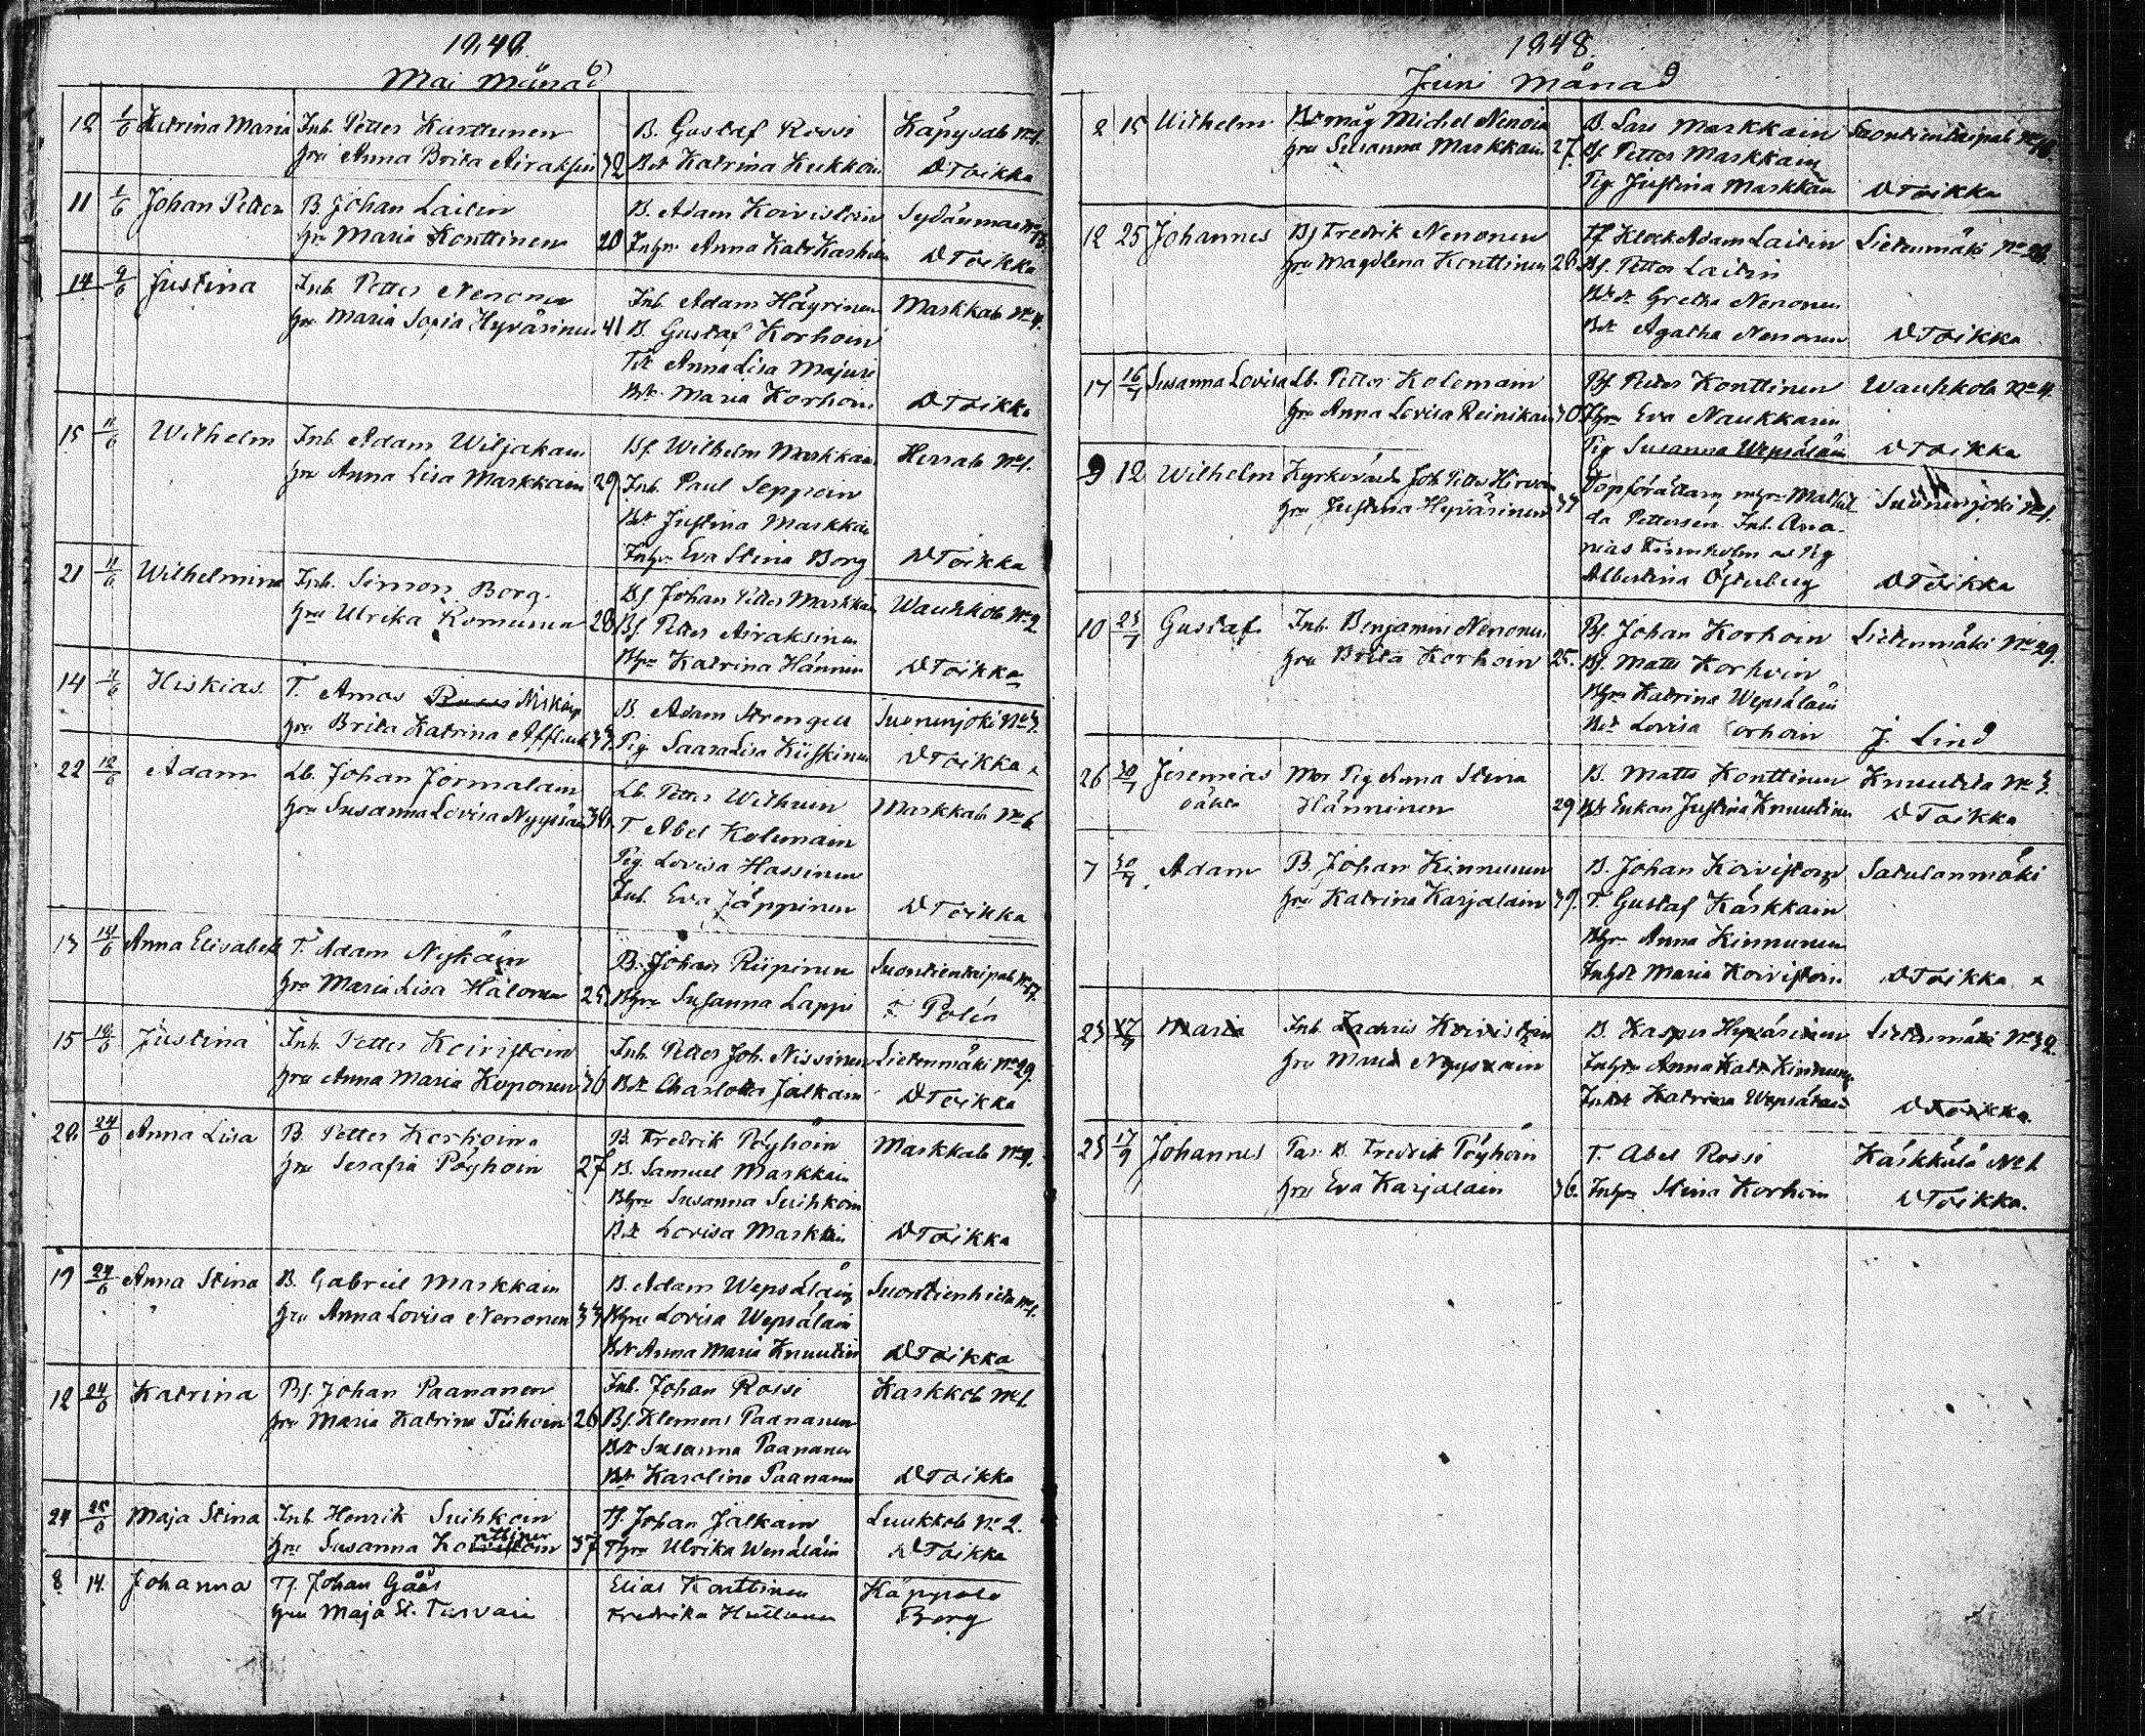 1848.
Mai Månad
12 1/6 Katrina Maria Inh. Petter Kurttunen B. Gustaf Rossi Käpysalo No 1.
hru Anna Brita Airaksin 32 Bdr Katrina Kukkoin D Toikka
11 1/6 Johan Petter B. Johan Laitin B. Adam Koivistoin Sydänmaa No 13.
hru Maria Konttinen 20 Inhru Anna Katr Karhin D Toikka
14 9/6 Justina Inh. Petter Nenonen Inh. Adam Häyrinen Markkala No 4.
hru Maria Sofia Hyvärinen 41 B. Gustaf Korhoin
Tdr Anna Lisa Majuri
Bdr Maria Korhoin D Toikka
15 11/6 Wilhelm Inh. Adam Wiljakain Bf. Wilhelm Markkain Herrala No 1.
hru Anna Lisa Markkain 29 Inh. Paul Seppoin
Bdr Justina Markkain
Inhru Eva Stina Borg D Toikka
21 11/6 Wilhelmina Inh. Simon Borg Bf. Johan Petter Markkain Wauhkola No 2
hru Ulrika Romunen 28 Bf. Petter Airaksinen
Bhru Katrina Hännin D Toikka
14 11/6 Hiskias T. Amos Niskain B. Adam Strengell Suonenjoki No 3.
hru Brita Katrina Afflect 37. Pig. Saara Lisa Kiiskinen D Toikka
22 12/6 Adam Lb. Johan Jormalain Lb. Petter Withuin Markkala No 6
hru Susanna Lovisa Nyyssöin 34. T. Abel Kolemain
Pig. Lovisa Hassinen
Inh. Eva Jäppinen D Toikka
13 14/6 Anna Elisabeth T. Adam Nykäin B. Johan Riipinen Suontientaipale No 17.
hru Maria Lisa Halonen 25. Bhru Susanna Lappi F. Polén
15 18/6 Justina Inh. Petter Koivistoin Inh. Petter Joh. Nissinen Lietenmäki No 29.
hru Anna Maria Koponen 36 Bdr Charlotta Jalkain D Toikka
20. 24/6 Anna Lisa B. Petter Korhoin B. Fredrik Pöyhöin Markkala No 9.
hru Serafia Pöyhöin 27 B. Samuel Markkain
Bhru Susanna Suihkoin
Bdr Lovisa Markkain D Toikka
19 24/6 Anna Stina B. Gabriel Markkain B. Adam Wepsäläin Suontienhieta No 1.
hru Anna Lovisa Nenonen 33 Bhru Lovisa Wepsäläin
Bdr Anna Maria Knuutin D Toikka
12 24/6 Katrina Bf. Johan Paananen Inh. Johan Rossi Karkkola No 1.
hru Maria Katrina Tiihoin 26 Bf. Klemens Paananen
Bdr Susanna Paananen
Bdr Karolina Paananen D Toikka
24 25/6 Maja Stina Inh. Henrik Suihkoin Tf. Johan Jalkain Luukkola No 2.
hru Susanna Konttinen 37 Thru Ulrika Wenäläin D Toikka
8 14. Johanna Tf. Johan Gåås Elias Konttinen Käppala
hru Maja St. Tarvain Fredrika Huttunen Borg
1848.
Juni Månad
2 15 Wilhelm Bdmåg Michel Nenoin B. Lars Markkain Suontientaipale No 18.
hru Susanna Markkain 27. Bf. Petter Markkain
Pig. Justina Markkain D Toikka
12 25 Johannes Bf Fredrik Nenonen Tf Klock Adam Laitin Lietenmäki No 28.
hru Magdlena Konttinen 26. Bf. Petter Laitin
Bdr Gretha Nenonen
Bdr Agatha Nenonen D Toikka
17 16/7 Susanna Lovisa Lb. Petter Kolemain Bf. Petter Konttinen Wauhkola No 4.
hru Anna Lovisa Reinikain 30 Thru Eva Naukkarin
Pig Susanna Wepsäläin D Toikka
9 12 Wilhelm Kyrkovärd Joh. Petter Hirvoin Dopförättarn m hru Mathil- Suonenjoki No 1.
hru Justina Hyvärinen 37 da Petterssén. Inh. Ana-
nias Finnholm o Pig
Albertina Österberg D Toikka
10 23/7 Gustaf Inh. Benjamin Nenonen Bf. Johan Korhoin Lietenmäki No 29.
hru Brita Korhoin 25. Bf. Matts Korhoin
Bhru Katrina Wepsäläin
Bdr Lovisa Korhoin J. Lind
26 30/7 Jeremias Mor Pig Anna Stina B. Matts Konttinen Knuutila No 3.
oäkta Hänninen 29 Bd Enkan Justina Knuutinen D Toikka
7 30/7 Adam B. Johan Kinnunen B. Johan Koivistoin Satulanmäki
hru Katrina Karjalain 39. T. Gustaf Kärkkäin
Bhru Anna Kinnunen
Inhdr Maria Koivistoin D Toikka
23 Maria Inh. Zachris Koivistoin B. Kasper Hyvärinen Lietenmäki No 32.
hru Maria Nyyssöin Inhru Anna Katr Kinnunen
Inhdr Katrina Wepsäläin D Toikka.
25 17/9 Johannes Far. B. Fredrik Pöyhöin T. Abel Rossi Kärkkälä No 1
hru Eva Karjalain 36. Inhru Stina Korhoin D Toikka.